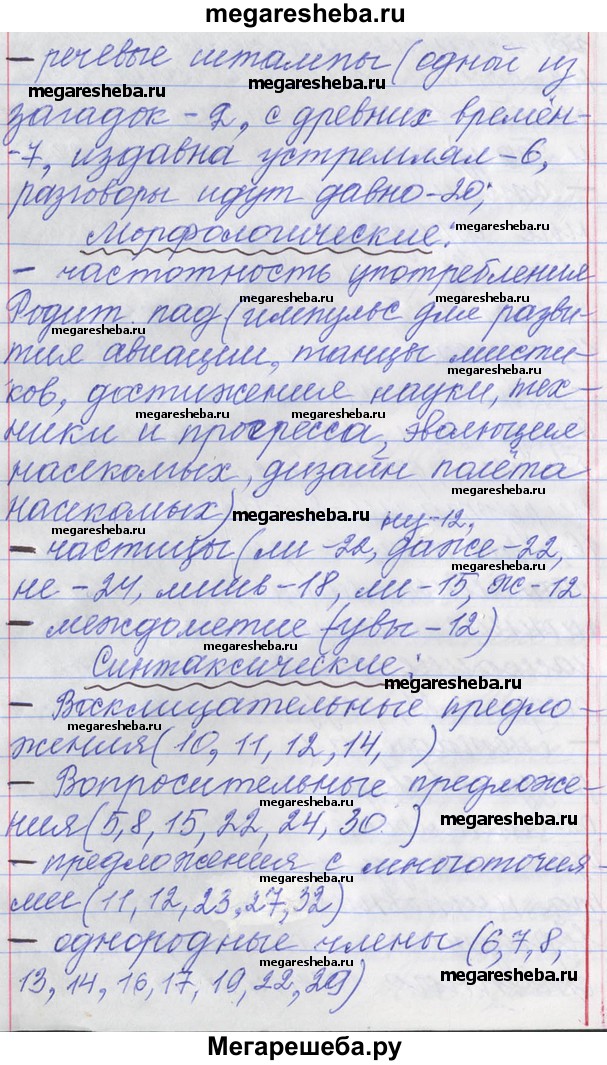 megaresheba.ru
– речевые штампы (одной из
загадок – 2, с древних времён –
– 7, издавна устремлял – 6,
разговоры идут давно – 20;
Морфологические:
– частотность употребления
Родит. пад. (импульс для разви-
тия авиации, танцы мисти-
ков, достижения науки, тех-
ники и прогресса, эволюция
насекомых, дизайн полёта
насекомых)
ну – 12,
– частицы (ли – 22, даже – 22,
не – 24, лишь – 18, ли – 15, ж – 12
– междометие (увы – 12)
Синтаксические:
– Восклицательные предло-
жения (10, 11, 12, 14, )
– Вопросительные предложе-
ния (5, 8, 15, 22, 24, 30 )
– предложения с многоточия-
ми (11, 12, 23, 27, 32)
– однородные члены (6, 7, 8,
13, 14, 16, 17, 19, 22, 29)
Мегарешеба.ру